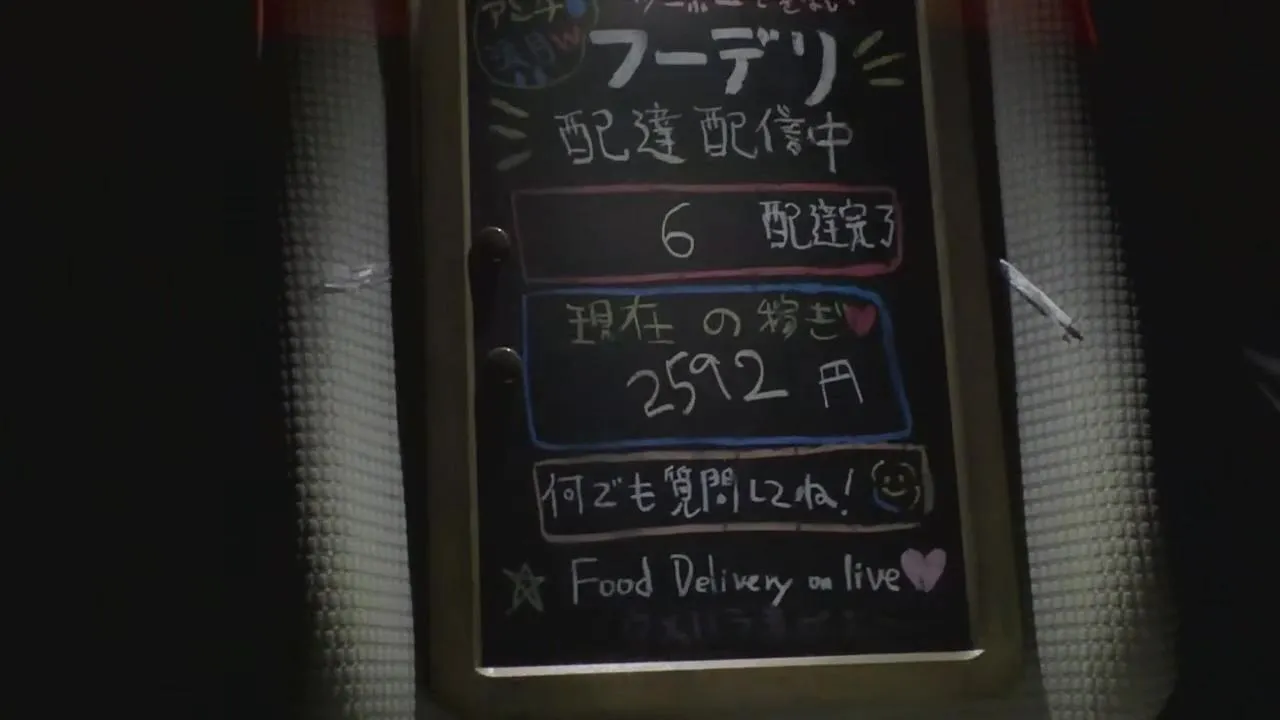 アンチ
フーデリ
配達配信中
6 配達完了
現在の稼ぎ
2592円
何でも質問してね!
Food Delivery on live